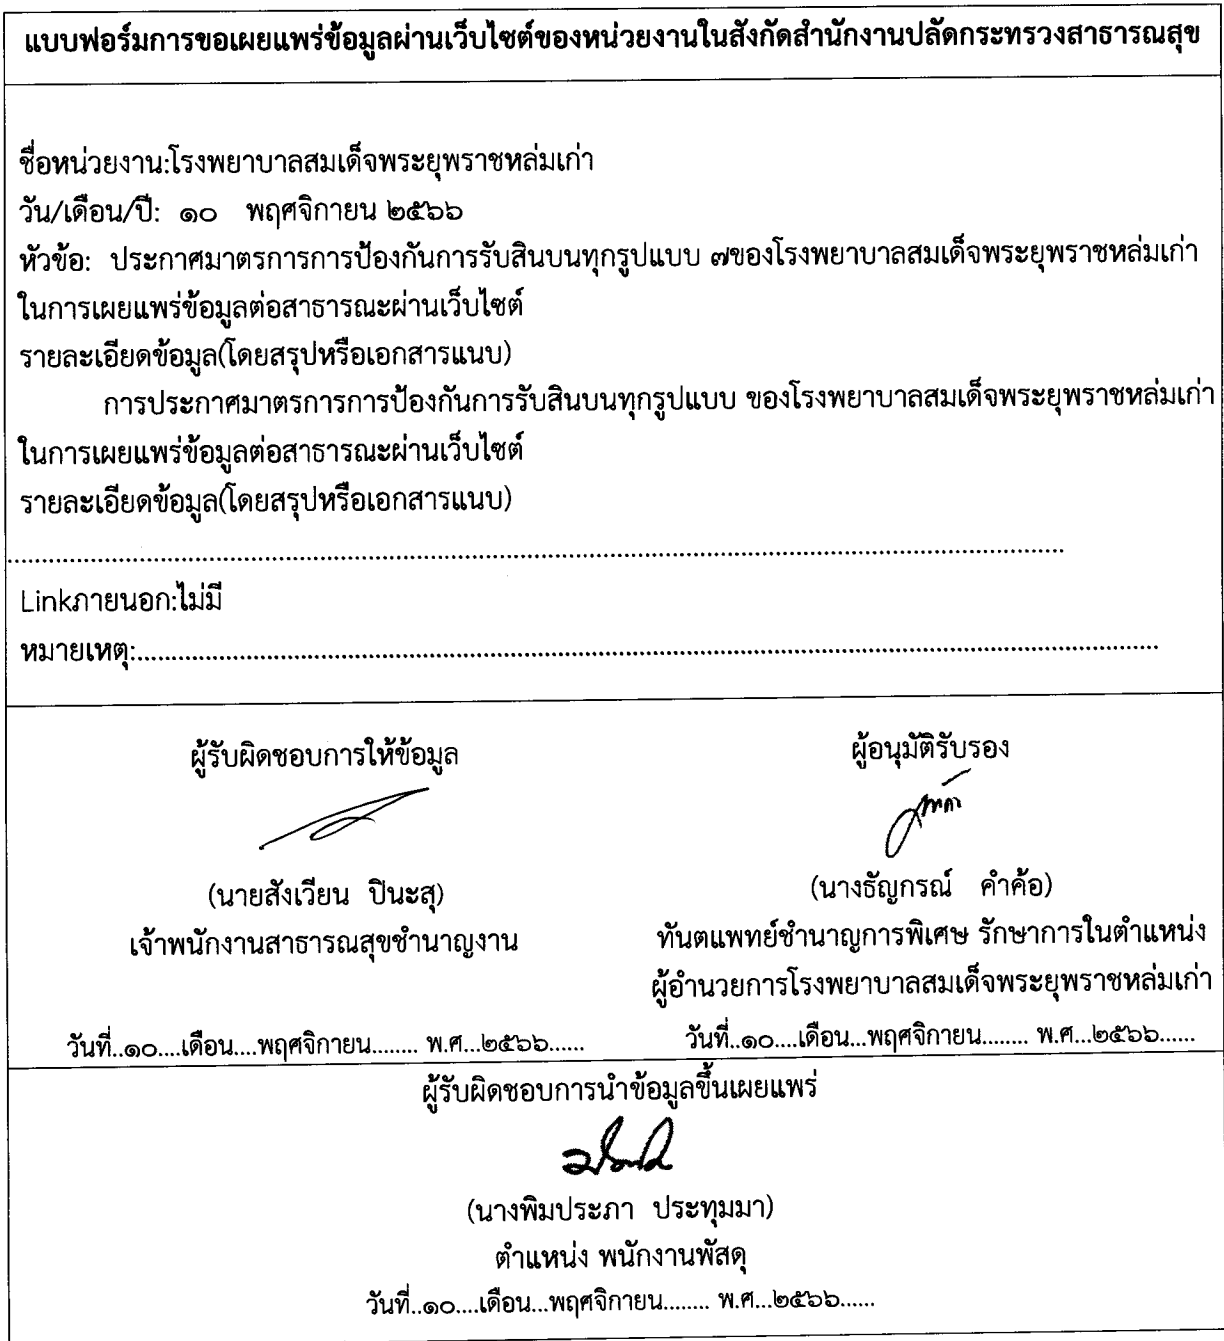 แบบฟอร์มการขอเผยแพร่ข้อมูลผ่านเว็บไซต์ของหน่วยงานในสังกัดสำนักงานปลัดกระทรวงสาธารณสุข
ชื่อหน่วยงาน:โรงพยาบาลสมเด็จพระยุพราชหล่มเก่า
วัน/เดือน/ปี: ๑๐ พฤศจิกายน ๒๕๖๖
หัวข้อ: ประกาศมาตรการการป้องกันการรับสินบนทุกรูปแบบ ๗ของโรงพยาบาลสมเด็จพระยุพราชหล่มเก่า
ในการเผยแพร่ข้อมูลต่อสาธารณะผ่านเว็บไซต์
รายละเอียดข้อมูล(โดยสรุปหรือเอกสารแนบ)
การประกาศมาตรการการป้องกันการรับสินบนทุกรูปแบบ ของโรงพยาบาลสมเด็จพระยุพราชหล่มเก่า
ในการเผยแพร่ข้อมูลต่อสาธารณะผ่านเว็บไซต์
รายละเอียดข้อมูล(โดยสรุปหรือเอกสารแนบ)
..........................................................................................................................................................
Linkภายนอก:ไม่มี
หมายเหตุ:.....................................................................................................................................................
ผู้รับผิดชอบการให้ข้อมูล
(นายสังเวียน ปินะสุ)
เจ้าพนักงานสาธารณสุขชำนาญงาน
วันที่..๑๐....เดือน....พฤศจิกายน........ พ.ศ...๒๕๖๖......
ผู้อนุมัติรับรอง
(นางธัญกรณ์ คำค้อ)
ทันตแพทย์ชำนาญการพิเศษ รักษาการในตำแหน่ง
ผู้อำนวยการโรงพยาบาลสมเด็จพระยุพราชหล่มเก่า
วันที่..๑๐....เดือน...พฤศจิกายน........ พ.ศ...๒๕๖๖......
ผู้รับผิดชอบการนำข้อมูลขึ้นเผยแพร่
(นางพิมประภา ประทุมมา)
ตำแหน่ง พนักงานพัสดุ
วันที่..๑๐....เดือน...พฤศจิกายน........ พ.ศ...๒๕๖๖......